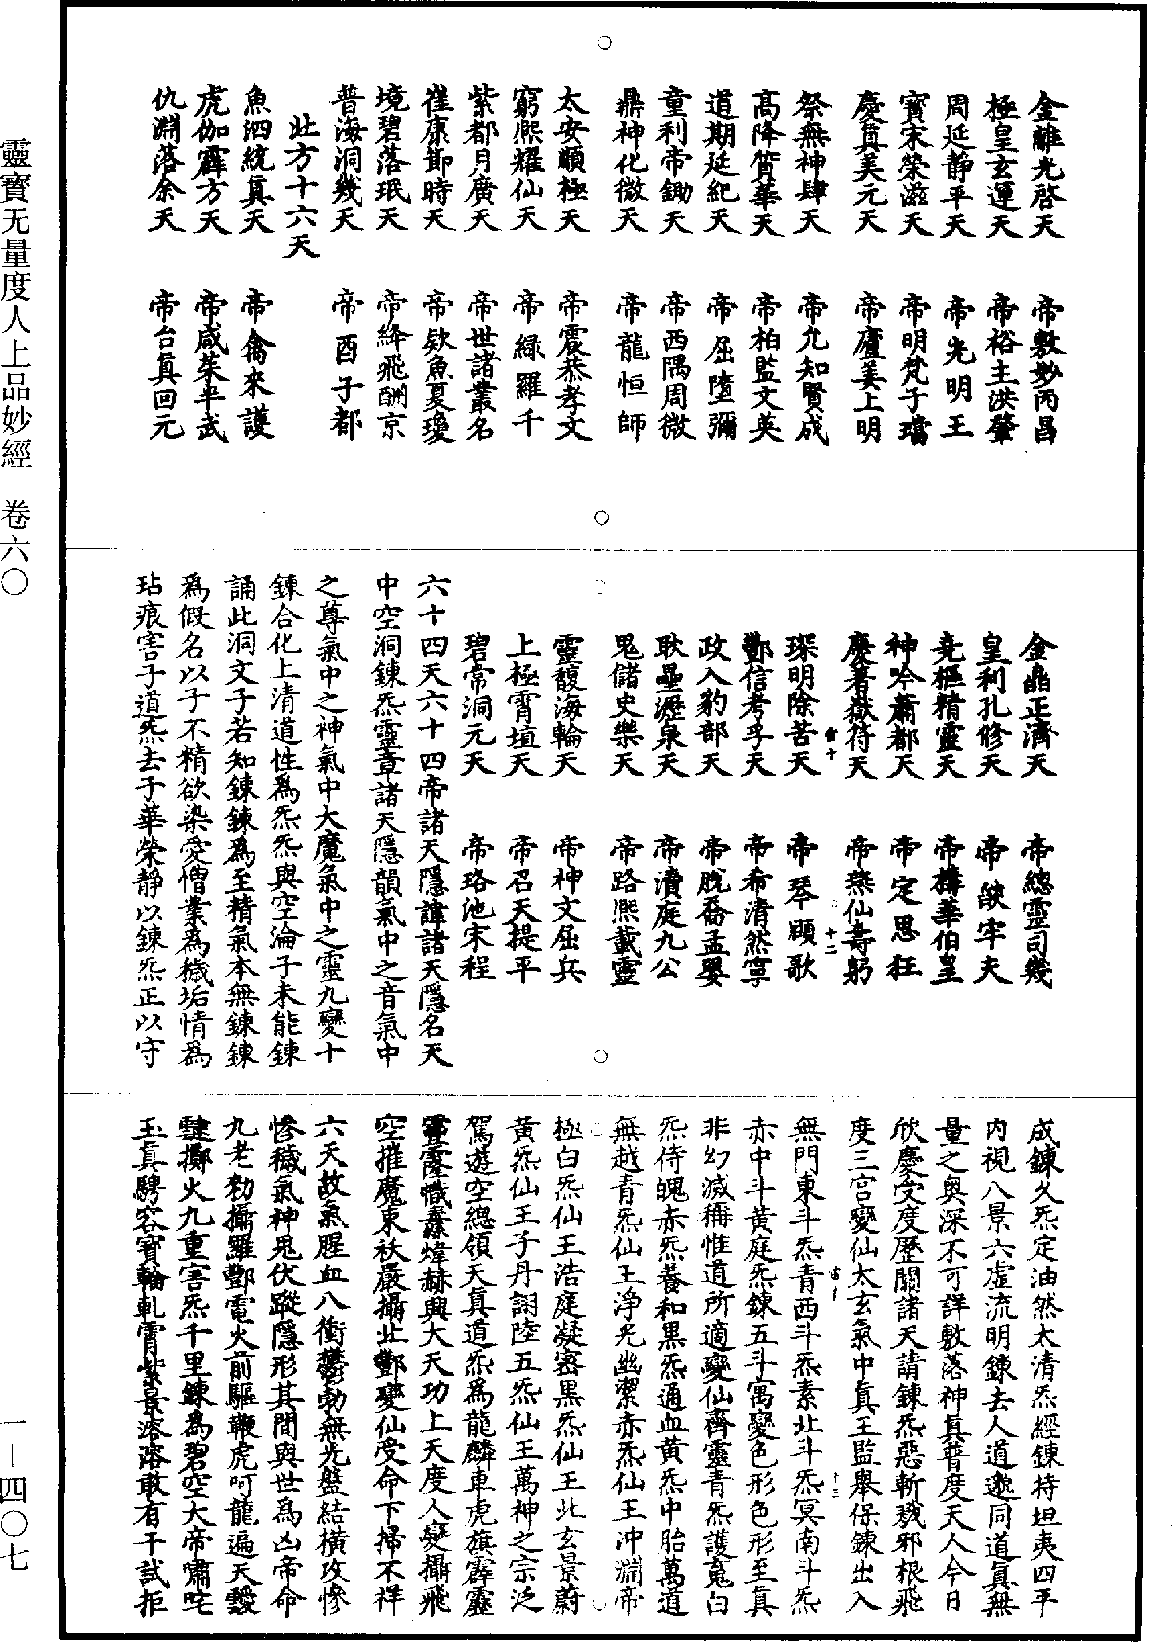 靈寶无量度人上品妙經　卷六〇
一—四〇七
金離光啓天　帝敷妙丙昌
極皇玄運天　帝裕主洪肇
周延静平天　帝光明王
寶宋榮滋天　帝明梵子璫
慶真美元天　帝廬姜上明
祭無神肆天　帝允知賢成
髙降膂華天　帝柏監文英
道期延紀天　帝屈墮彌
童利帝鋤天　帝西隅周微
鼎神化微天　帝龍恒師
太安顒極天　帝震恭孝文
窮熈耀仙天　帝緑羅千
紫都月廣天　帝世諸叢名
崔康卽時天　帝欵魚夏瓊
境碧落珉天　帝絳飛酬京
普海洞幾天　帝酉子都
北方十六天
魚泗統真天　帝禽來護
虎伽霹方天　帝咸茱平武
仇淵落余天　帝台真回元
金晶正濟天　帝總靈司幾
皇利孔修天　帝鈌牢夫
竞樞精靈天　帝攆華伯皇
神吟蕭都天　帝定思枉
慶著嶽符天　帝無仙壽躬
琛明除苦天　帝琴願歌
酆信考孚天　帝希清然寧
政入豹部天　帝脱喬孟嬰
耿壘瀝泉天　帝瀆庭九公
鬼儲史樂天　帝路熈載靈
靈馥海輪天　帝神文屈兵
上極霄垣天　帝召天提平
碧常洞元天　帝珞池宋程
六十四天六十四帝諸天隱諱諸天隱名天
中空洞鍊炁靈章諸天隱韻氣中之音氣中
之尊氣中之神氣中大魔氣中之靈九變十
鍊合化上清道性爲炁炁與空淪子未能鍊
誦此洞文子若知鍊鍊爲至精氣本無鍊鍊
爲假名以子不精欲染愛憎業爲穢垢情爲
玷痕害子道炁去子華榮静以鍊炁正以守
成鍊久炁定油然太清炁經鍊持坦夷四平
内視八景六虛流明鍊去人道邀同道真無
量之奥深不可詳敷落神真普度天人今日
欣慶受度歷關諸天請鍊炁惡斬殘邪根飛
度三宫變仙太玄氣中真王監舉保鍊出入
無門東斗炁青西斗炁素北斗炁冥南斗炁
赤中斗黄庭炁鍊五斗寓變色形色形至真
非幻滅稱惟道所適變仙齊靈青炁護䰟白
炁侍魄赤炁養和黑炁通血黄炁中胎萬道
無越青炁仙王淨光幽潔赤炁仙王冲淵帝
極白炁仙王浩庭凝密黒炁仙王北玄景蔚
黄炁仙王子丹詡陸五炁仙王萬神之宗泛
駕遊空總領天真道炁爲龍麟車虎旗霹靂
靈霳幟纛煒赫興大天功上天度人變攝飛
空摧魔束祅嚴攝北酆變仙受命下掃不祥
六天故氣腥血八衝欝勃無光盤結横攻慘
慘穢氣神鬼伏蹤隱形其間與世爲凶帝命
九老勑攝羅酆電火前驅鞭虎呵龍遍天毉
肆擲火九重害炁千里鍊爲碧空大帝嘯咤
玉真騁容寶輪軋霄紫景溶溶敢有干試拒